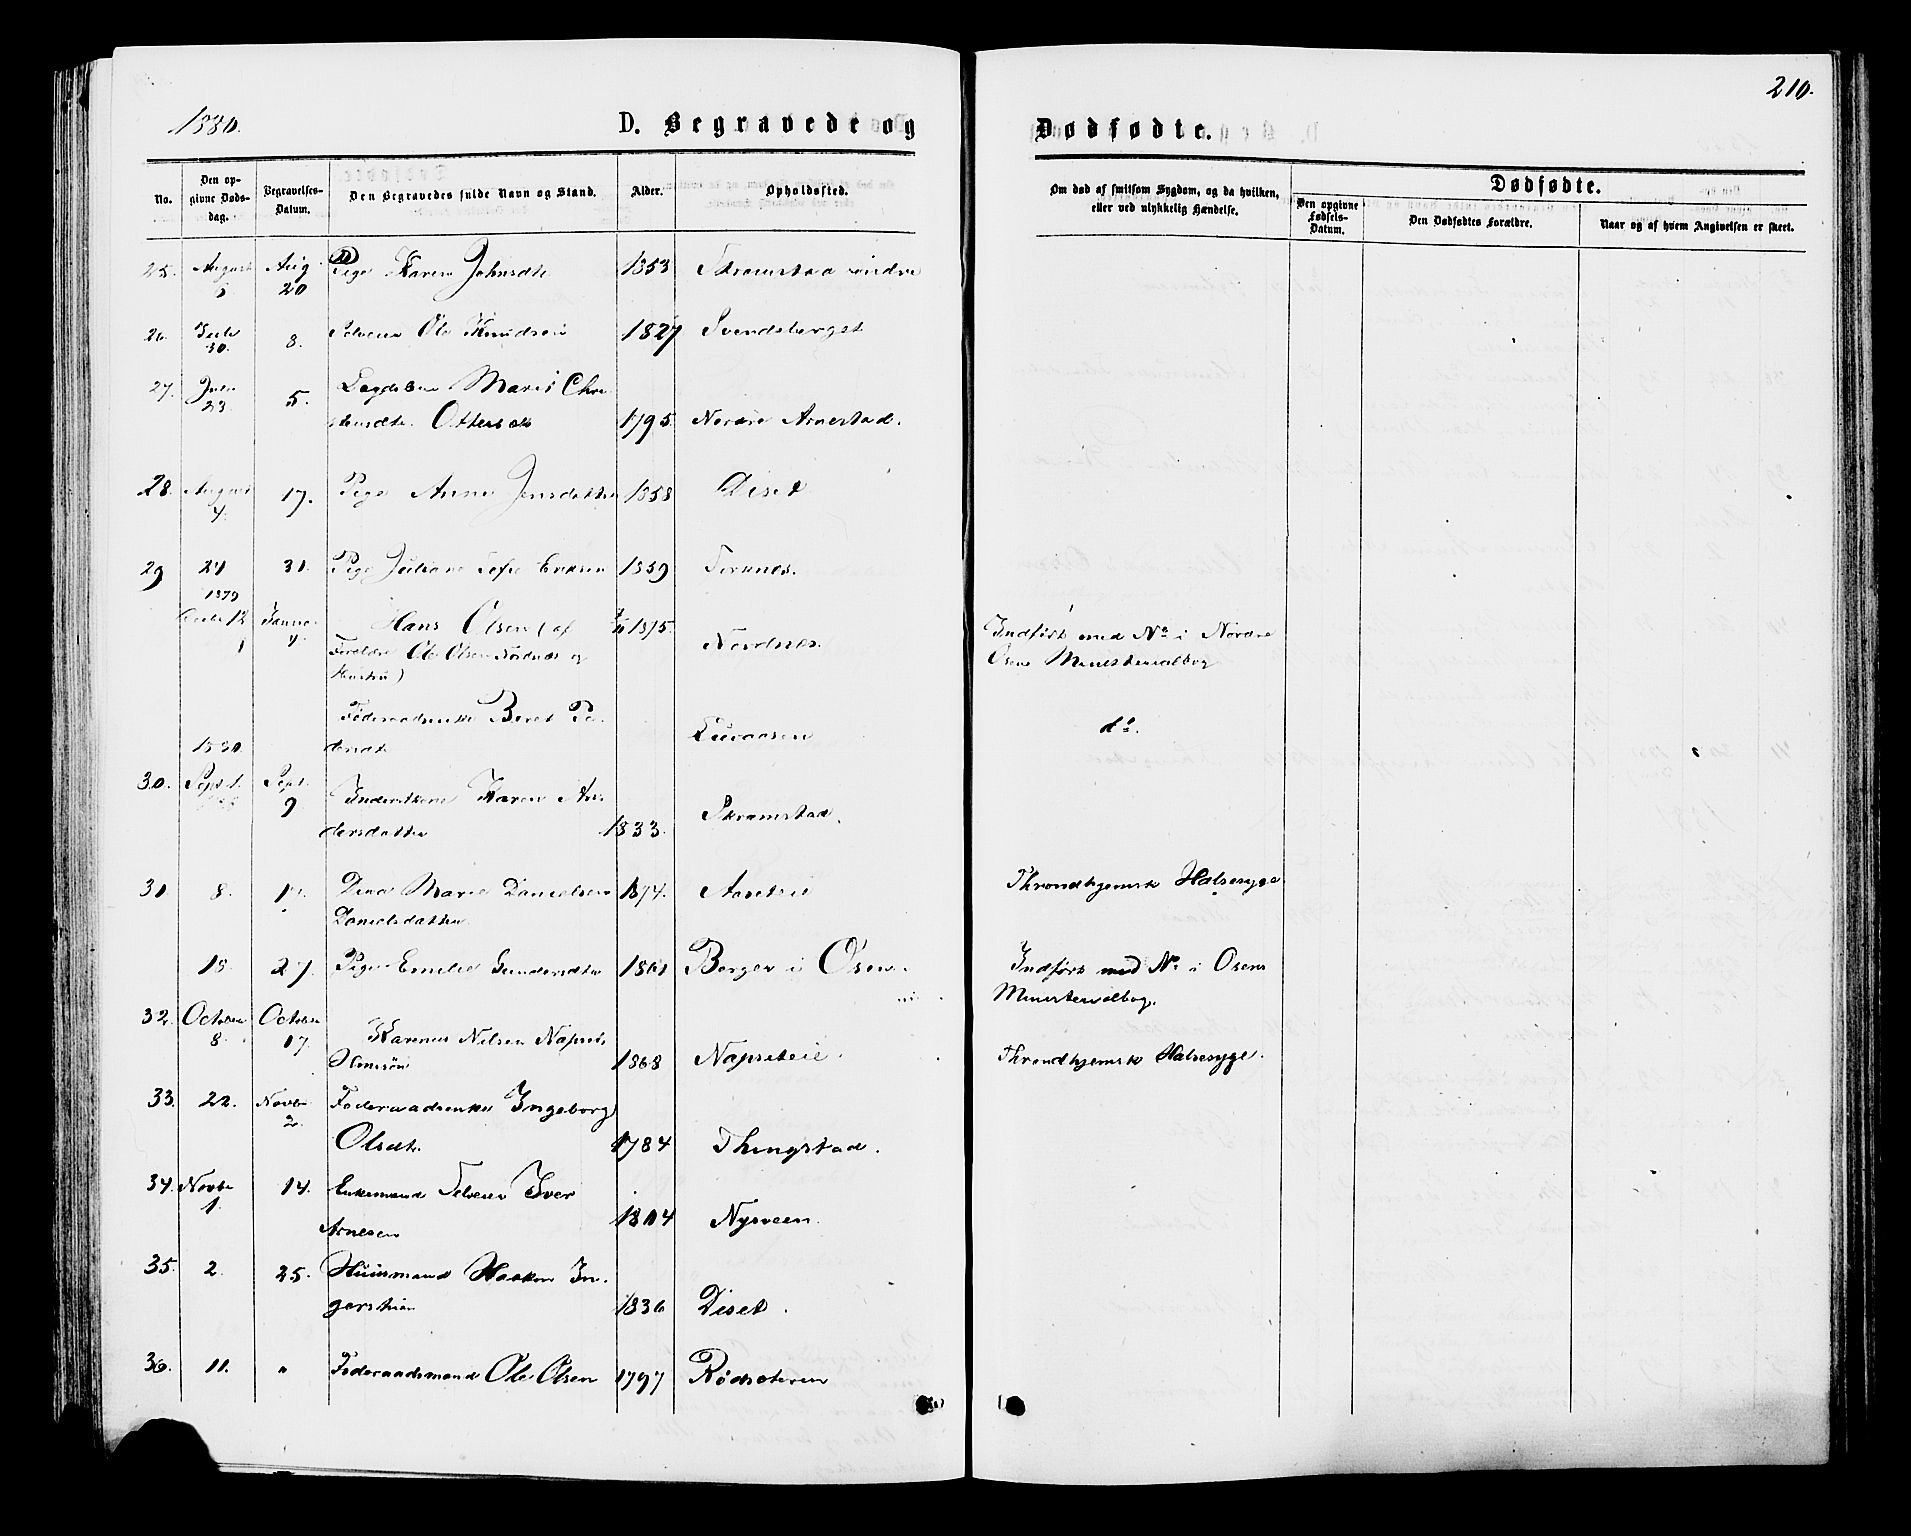 1880.
D. Begravede og
Dødfødte.
210.
No.
Den opgivne Dødsdag.
Begravelses-Datum.
Den Begravedes fulde Navn og Stand.
Alder.
Opholdssted.
Om død af smitsom Sygdom, og da hvilken, eller ved ulykkelig Hændelse.
Dødfødte.
Den opgivne Fødsels-Datum.
Den Dødfødtes Forældre.
Naar og af hvem Angivelsen er skeet.
25. August 6 Aug 20 Pige Karen Johnsdtr 1853 Skramstad søndre
26. Juli 30. 8. Selveier Ole Knudsen 1827 Svendsberget
27. Juli 23. 5. Marie Chri-
stensdtr. 1795. Nordre Arnestad.
28. August 4. 17. Pige Anne Jensdatter 1858 Diset
29 21 31. Pige Juliane Sofie Eriksen 1859
1879
12 Januar 4. Hans Olsen (af 1875. Nordnes. Indført med No i Nordre
Forældre Ole Olsen Nordnes og Osens Ministerialbog
Hustru)
Føderaadsenke Beret Pe-
1880. dersdtr do.
30. Sept 1. Sept. 9 Karen An-
dersdatter 1833. Skramstad.
31 8. 17. Marie Danielsen 1874. Throndhjemsk Halsesyge
Danielsdatter.
18. 27. Pige Emilie Gundersdtr 1861 Berger i Osen. Indført med No i Osens
Ministerialbog.
32. October 8. October 17. Karenus Nilsen Napset-
1868 Napseteie. Throndhjemsk Halsesyge.
33. 22. Novbr 2. Føderaadsenke Ingeborg
Olsdtr. 1784 Thingstad.
34. Novbr 1. 14. Enkemand Selveier Iver
Arnesen 1804 Nysveen.
35. 2. 25. Huusmand Haaken In-
1836 Diset.
36. 11. " Føderaadsmand Ole Olsen 1797 Rødsæteren